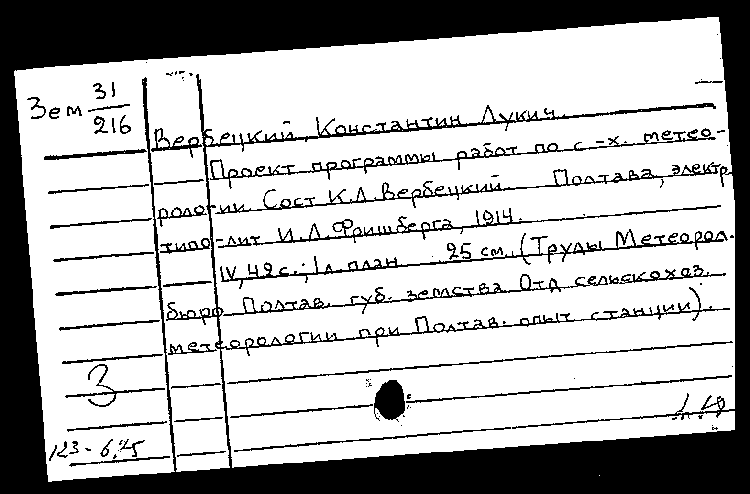 Зем 31/216
Вербецкий, Константин Лукич.
Проект программы работ по с-х. метео-
рологии Сост К.Л.Вербецкий. Полтава, электр.
типо-лит И.Л.Фришберга, 1914.
IV, 42 с.; 1 л. план 25 см. (Труды Метеорол.
бюро Полтав. губ. земства Отд сельскохоз.
метеорологии при Полтав. опыт станции).
3
123-6,45